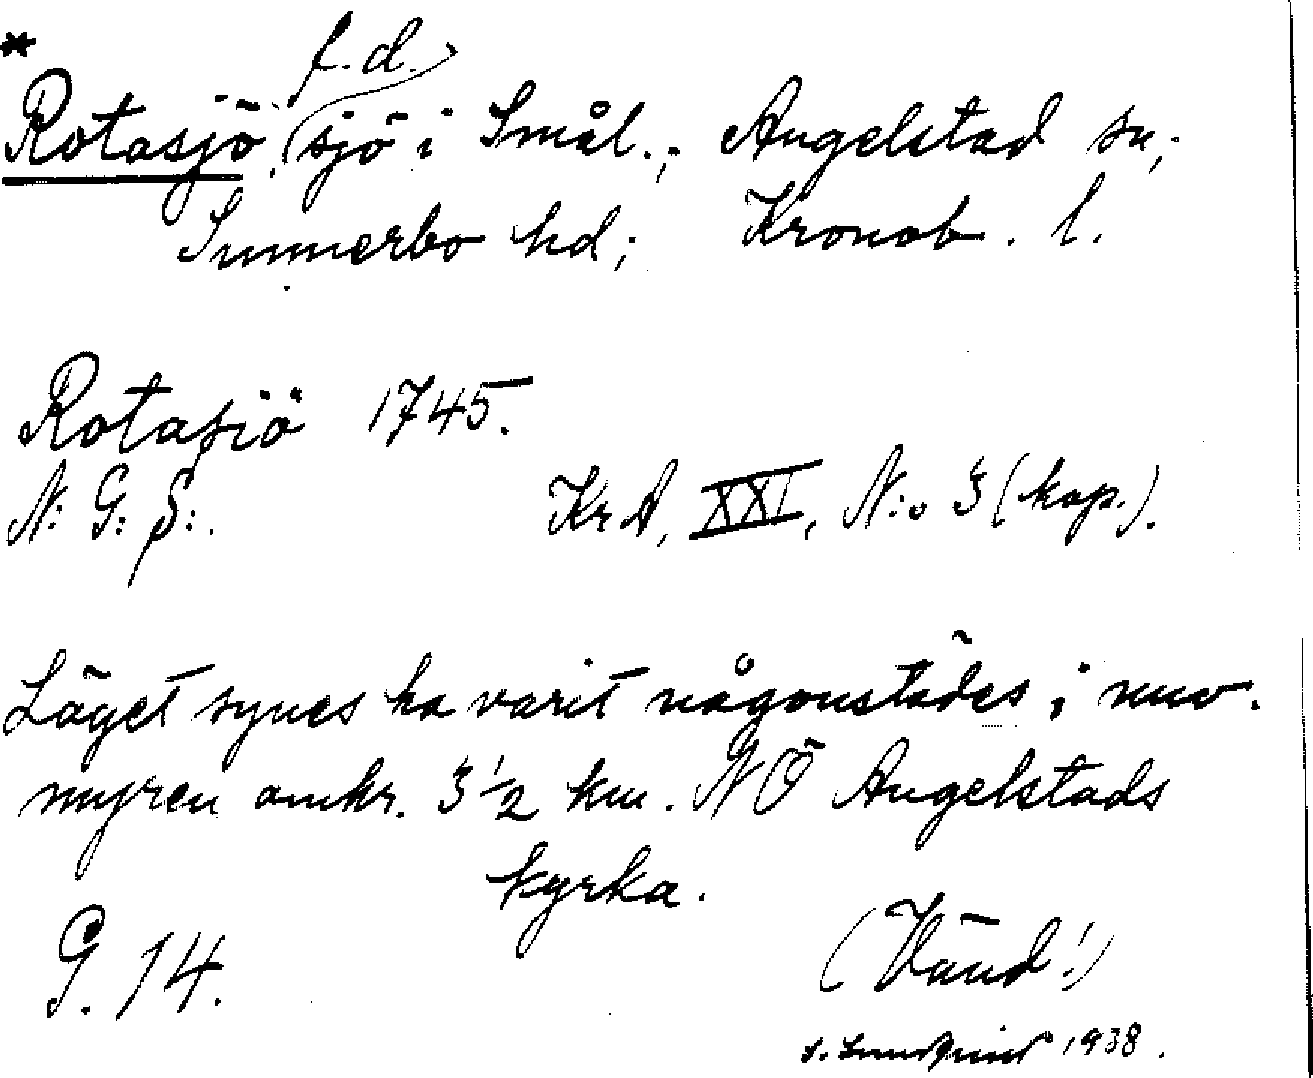 *
f.d.
Rotasjö, sjö i Smål.; Angelstad sn;
Sunnerbo hd; Kronob. l.
Rotasiö 1745.
N: G: S:. KrA, XXI, N:o 3 (kop.).
Läget synes ha varit någonstädes i nuv.
myren omkr. 3 1/2 km. NÖ Angelstads
kyrka.
G. 14. (Vänd!)
S. 1938.